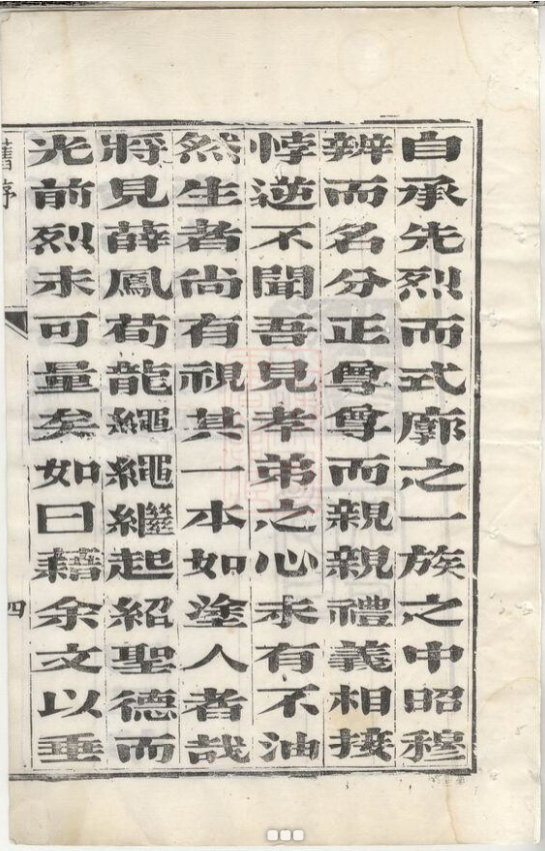 自承先烈而式廓之一族之中昭穆
辨而名分正尊尊而親親禮義相接
悖逆不聞吾見孝弟之心未有不油
然生者尚有視其一本如塗人者哉
將見薛鳳荀龍繩繩繼起紹聖德而
光前烈未可量矣如曰藉余文以垂
舊序
四